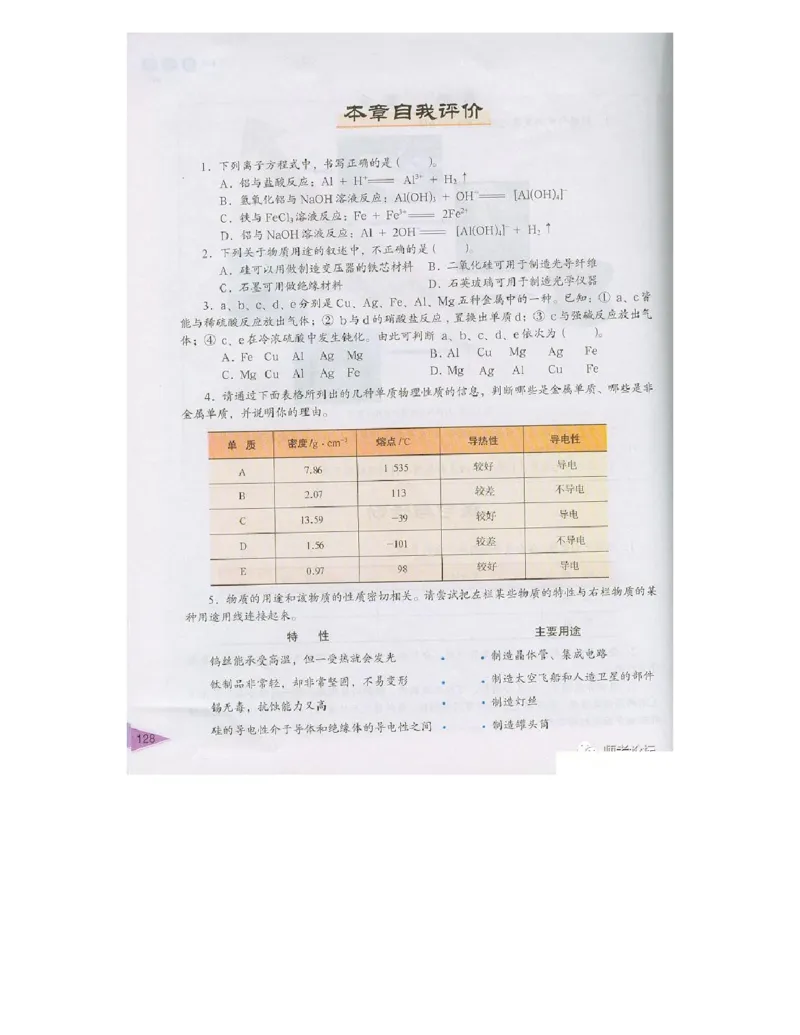 本章自我评价
1．下列离子方程式中，书写正确的是（　　）。
A．铝与盐酸反应：Al + H⁺ ══ Al³⁺ + H₂↑
B．氢氧化铝与NaOH溶液反应：Al(OH)₃ + OH⁻ ══ [Al(OH)₄]⁻
C．铁与FeCl₃溶液反应：Fe + Fe³⁺ ══ 2Fe²⁺
D．铝与NaOH溶液反应：Al + 2OH⁻ ══ [Al(OH)₄]⁻ + H₂↑
2．下列关于物质用途的叙述中，不正确的是（　　）。
A．硅可以用做制造变压器的铁芯材料　B．二氧化硅可用于制造光导纤维
C．石墨可用做绝缘材料　D．石英玻璃可用于制造光学仪器
3．a、b、c、d、e分别是Cu、Ag、Fe、Al、Mg五种金属中的一种。已知：① a、c皆
能与稀硫酸反应放出气体；② b与d的硝酸盐反应，置换出单质d；③ c与强碱反应放出气
体；④ c、e在冷浓硫酸中发生钝化。由此可判断 a、b、c、d、e依次为（　　）。
A．Fe Cu Al Ag Mg　B．Al Cu Mg Ag Fe
C．Mg Cu Al Ag Fe　D．Mg Ag Al Cu Fe
4．请通过下面表格所列出的几种单质物理性质的信息，判断哪些是金属单质、哪些是非
金属单质，并说明你的理由。
单质　密度/g·cm⁻³　熔点/℃　导热性　导电性
A　7.86　1 535　较好　导电
B　2.07　113　较差　不导电
C　13.59　−39　较好　导电
D　1.56　−101　较差　不导电
E　0.97　98　较好　导电
5．物质的用途和该物质的性质密切相关。请尝试把左栏某些物质的特性与右栏物质的某
种用途用线连接起来。
特性　主要用途
钨丝能承受高温，但一受热就会发光 · · 制造晶体管、集成电路
钛制品非常轻，却非常坚固，不易变形 · · 制造太空飞船和人造卫星的部件
锡无毒，抗蚀能力又高 · · 制造灯丝
硅的导电性介于导体和绝缘体的导电性之间 · · 制造罐头筒
128